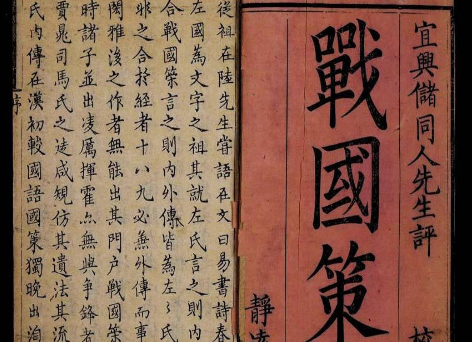 宜興儲同人先生評
戰國策
靜
後祖在陸先生嘗語在文曰易書詩春
左國為文字之祖其就左氏言之則內
合戰國策言之則內外傳皆為左〻氏
邪之合於經者十八九必無外傳而事
閎雅浚之作者無能出其門戶戰國策
時諸子並出凌厲揮霍亦無與爭鋒者
賈鼂司馬氏之徒咸規仿其遺法其流
氏內傳在漢初較國語國策獨晚出洎
序